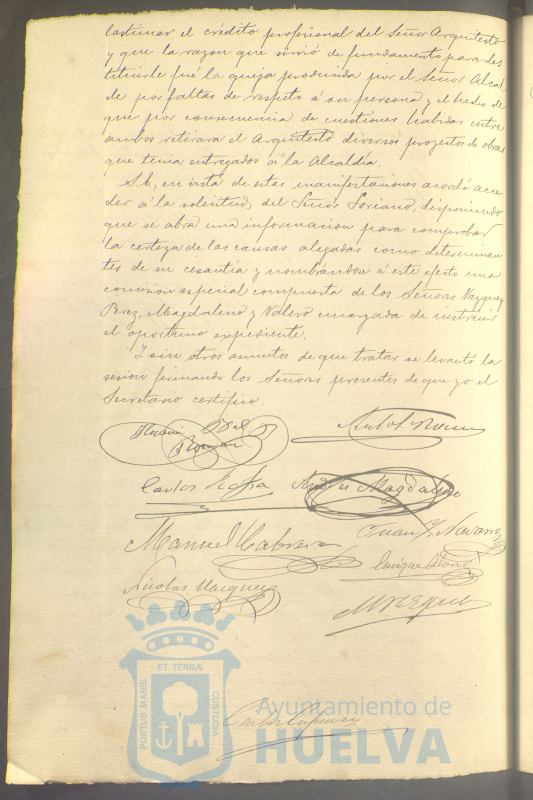 lastimar el crédito profesional del Señor Arquitecto
y que la razon que sirvió de fundamento para des
tituirle fué la queja producida por el Señor Alcal
de por faltas de respeto á su persona y el hecho de
que por consecuencia de cuestiones habidas entre
ambos retirara el Arquitecto diversos proyectos de obras
que tenia entregados á la Alcaldia.
S. E. en vista de estas manifestaciones acordó acce
der á la solicitud del Señor Soriano, disponiendo
que se abra una informacion para comprobar
la certeza de las causas alegadas como determinan
tes de su cesantia y nombrandose á este efecto una
comision especial compuesta de los Señores Vazquez
Perez, Magdaleno y Valero encargada de instruir
el oportuno expediente.
Y sin otros asuntos de que tratar se levantó la
sesion firmando los Señores presentes de que yo el
Secretario certifico.
Carlos
Magdaleno
Manuel Cabrera
Juan Navarro
Nicolas Vazquez
Enrique
M Vazquez
PORTUS MARIS
ET TERRÆ
CUSTODIA
Ayuntamiento de
HUELVA